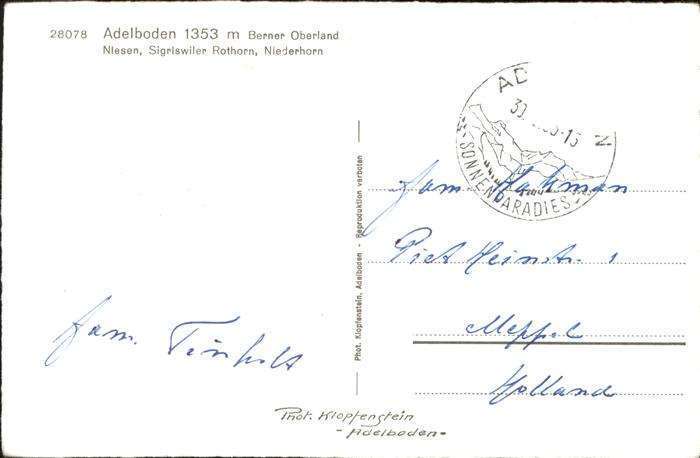 28078 Adelboden 1353 m Berner Oberland
Niesen, Sigriswiler Rothorn, Niederhorn
AD N
SONNENPARADIES
Fam. Hakman
Piet Heinstr. 1
Meppel
Holland
Fam.
Phot. Klopfenstein, Adelboden - Reproduktion verboten
Phot. Klopfenstein
- Adelboden -